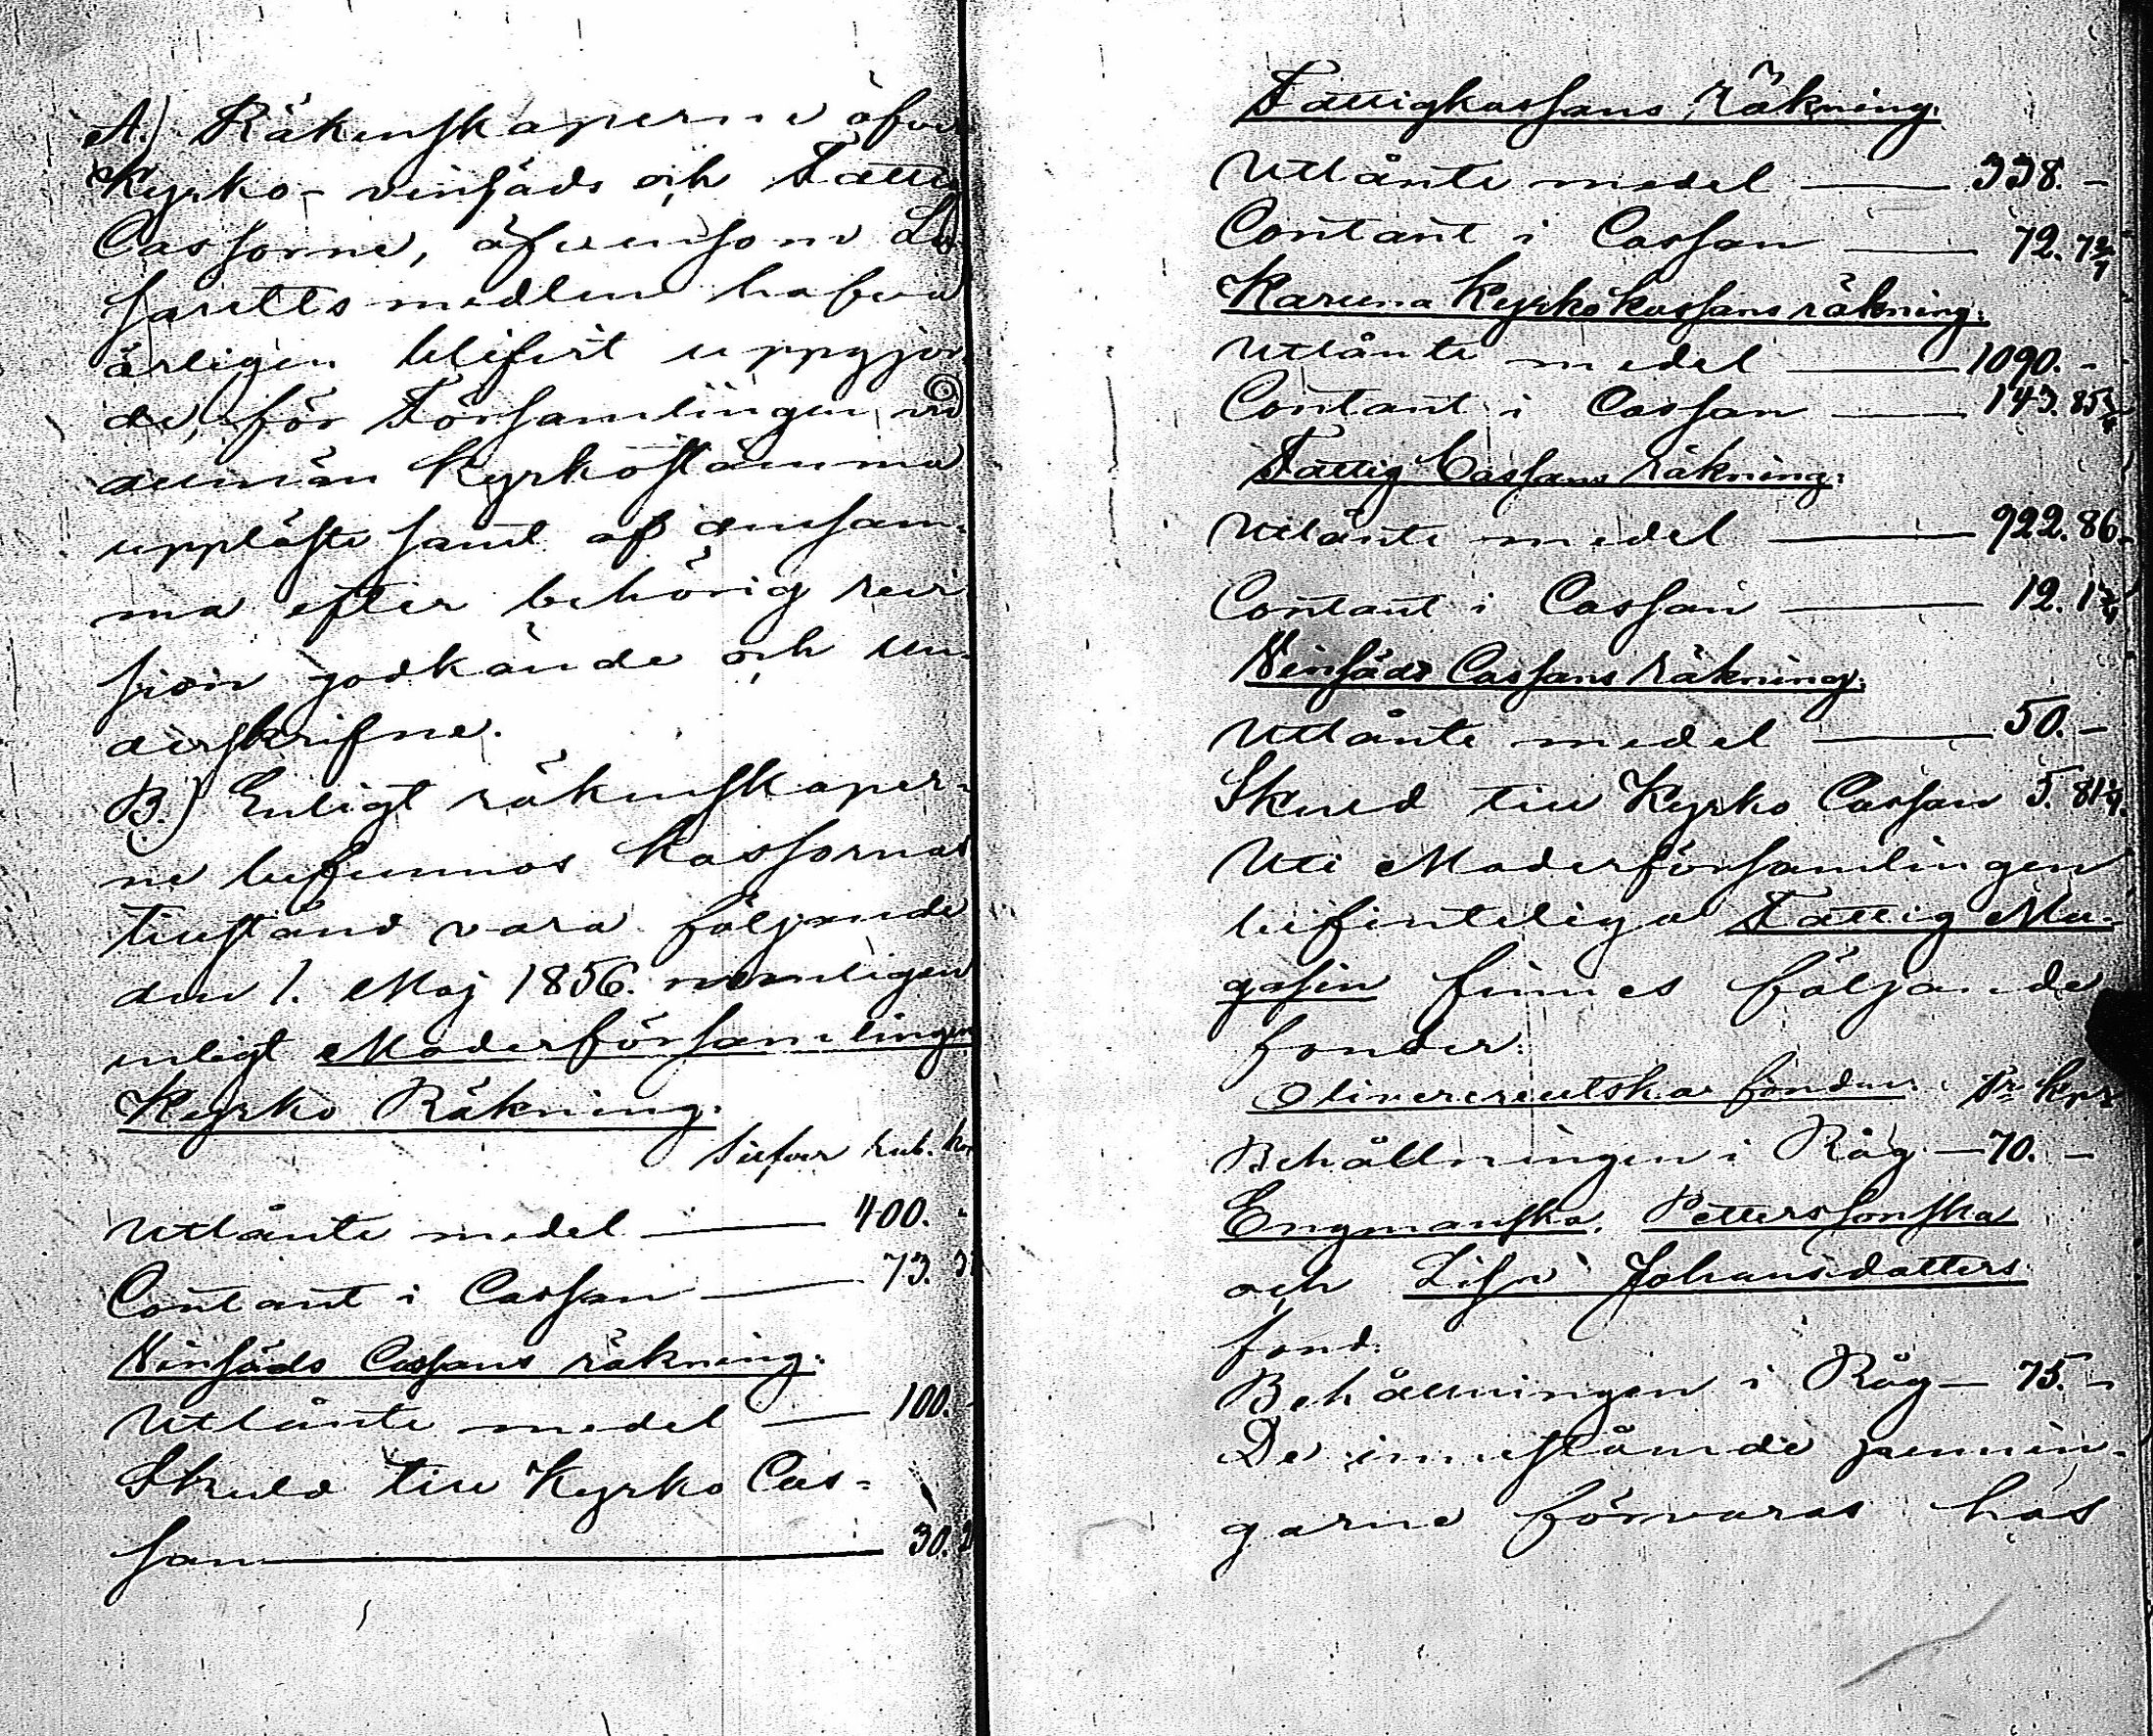 A.) Räkenskaperne öfver
Kyrko- vinsäds och Fattig
Cassorne, äfvensom La
saretts medlen hafva
årligen blifvit uppgjor
de, för Församlingen vid
allmän Kyrkostämma
uppläste samt af densam-
ma efter behörig revi
sion godkände och un-
derskrifne.
B.) Enligt räkenskaper-
ne befunnos kassornas
tillstånd vara följande
den 1. Maj 1856. nemligen
enligt Moderförsamlingen
Kyrko Räkning.
Silfver rub. kop
Utlånte medel — 400. -
Contant i Cassan — 73.
Vinsäds Cassans räkning.
Utlånte medel — 100. -
Skuld till Kyrko Cas-
san — 30.
Fattigkassans Räkning.
Utlånte medel — 338. -
Contant i Cassan — 72.
Karuna Kyrko kassans räkning.
Utlånte medel — 1090. -
Contant i Cassan — 143.
Fattig Cassans räkning.
Utlånte medel — 922. 86.
Contant i Cassan — 12.
Vinsäds Cassans räkning.
Utlånte medel — 50. -
Skuld till Kyrko Cassan 5.
Uti Moderförsamlingen
befinteliga Fattig Ma-
gasin finnes följande
fonder:
Olivecreutska fonden. Tr. kpr
Behållningen i Råg — 70. -
Engmanska, Petterssonska
och Lisa Johansdotters
fond.
Behållningen i Råg — 75. -
De innestående pennin-
garne förvaras hos